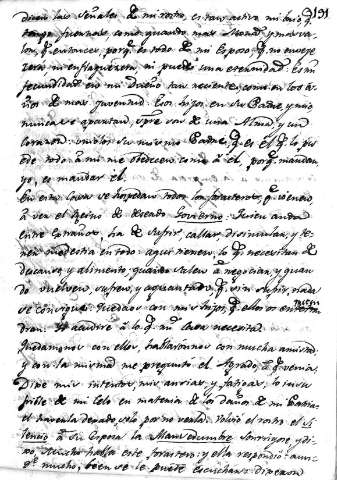 191
dicen las señales de mi rostro, es tan activa mi luz, q.e
tengo fuerzas, como quando mas Moza, y mas va-
lor, q.e entonces porq.e es todo de mi Esposo, q.e no enveje
zera ni enflaquezera, ni puede una eternidad. Es mi
fecundidad en mi dueño tan reciente, como en los a-
ños de mas juventud. Los hijos en su Padre, y mio
nunca se apartan, spre son de una Alma, y un
corazon: unelos su mismo Padre, q.e es el q.e lo pu
ede todo: a mi me obedecen como a él, porq.e mandan
yo, es mandar él.
En esta Casa se hospedan todos los forasteros, q.e vienen
a ver el Reino de Deseado Govierno: Quien anda
entre Extraños, ha de sufrir, callar, disimular, y te-
ner modestia en todo: aqui tienen lo q.e necesitan de
descanso, y alimento, quando salen a negociar, y quan
do vuelven, sufren, y aguantan q.e sin sufrir, nada
se consigue. Quedaos con mis hijos, q.e ellos os enten
dran: Yo acudire a lo q.e mi Casa necesita.
Quedamonos con ellos, hablaronnos con mucha amistad
y con la misma me preguntó el Agrado, a q.e venia.
Dije mis intentos, mis ansias, y fatigas, lo insu
frible de mi celo en materia de los daños de mi Patria:
el haverla dejado, solo por no verla. Volvió el rostro el Si
lencio a su Esposa la Mansedumbre, sonriose, y di-
xo: Mucho habla este forastero; y ella respondió: aun-
q.e mucho, bien se le puede escuchar: dijeron